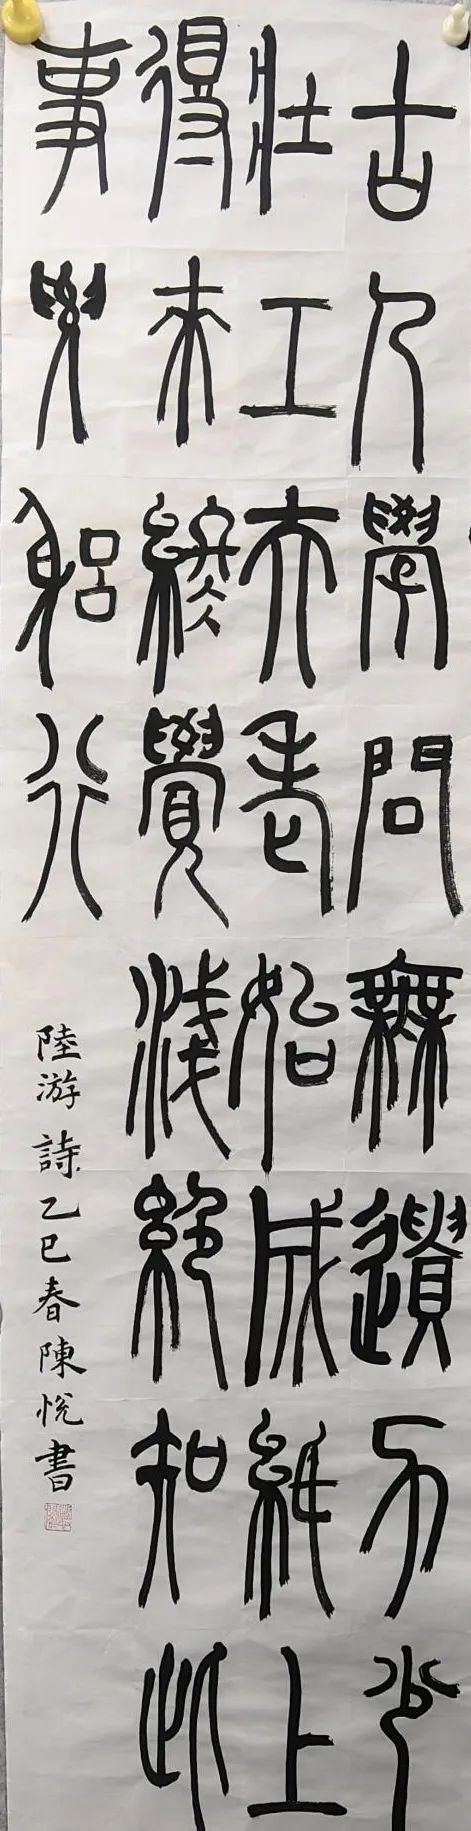 古人學問無遺力少
壯工夫老始成紙上
得來終覺淺絕知此
事要躬行
陸游詩乙巳春陳悅書